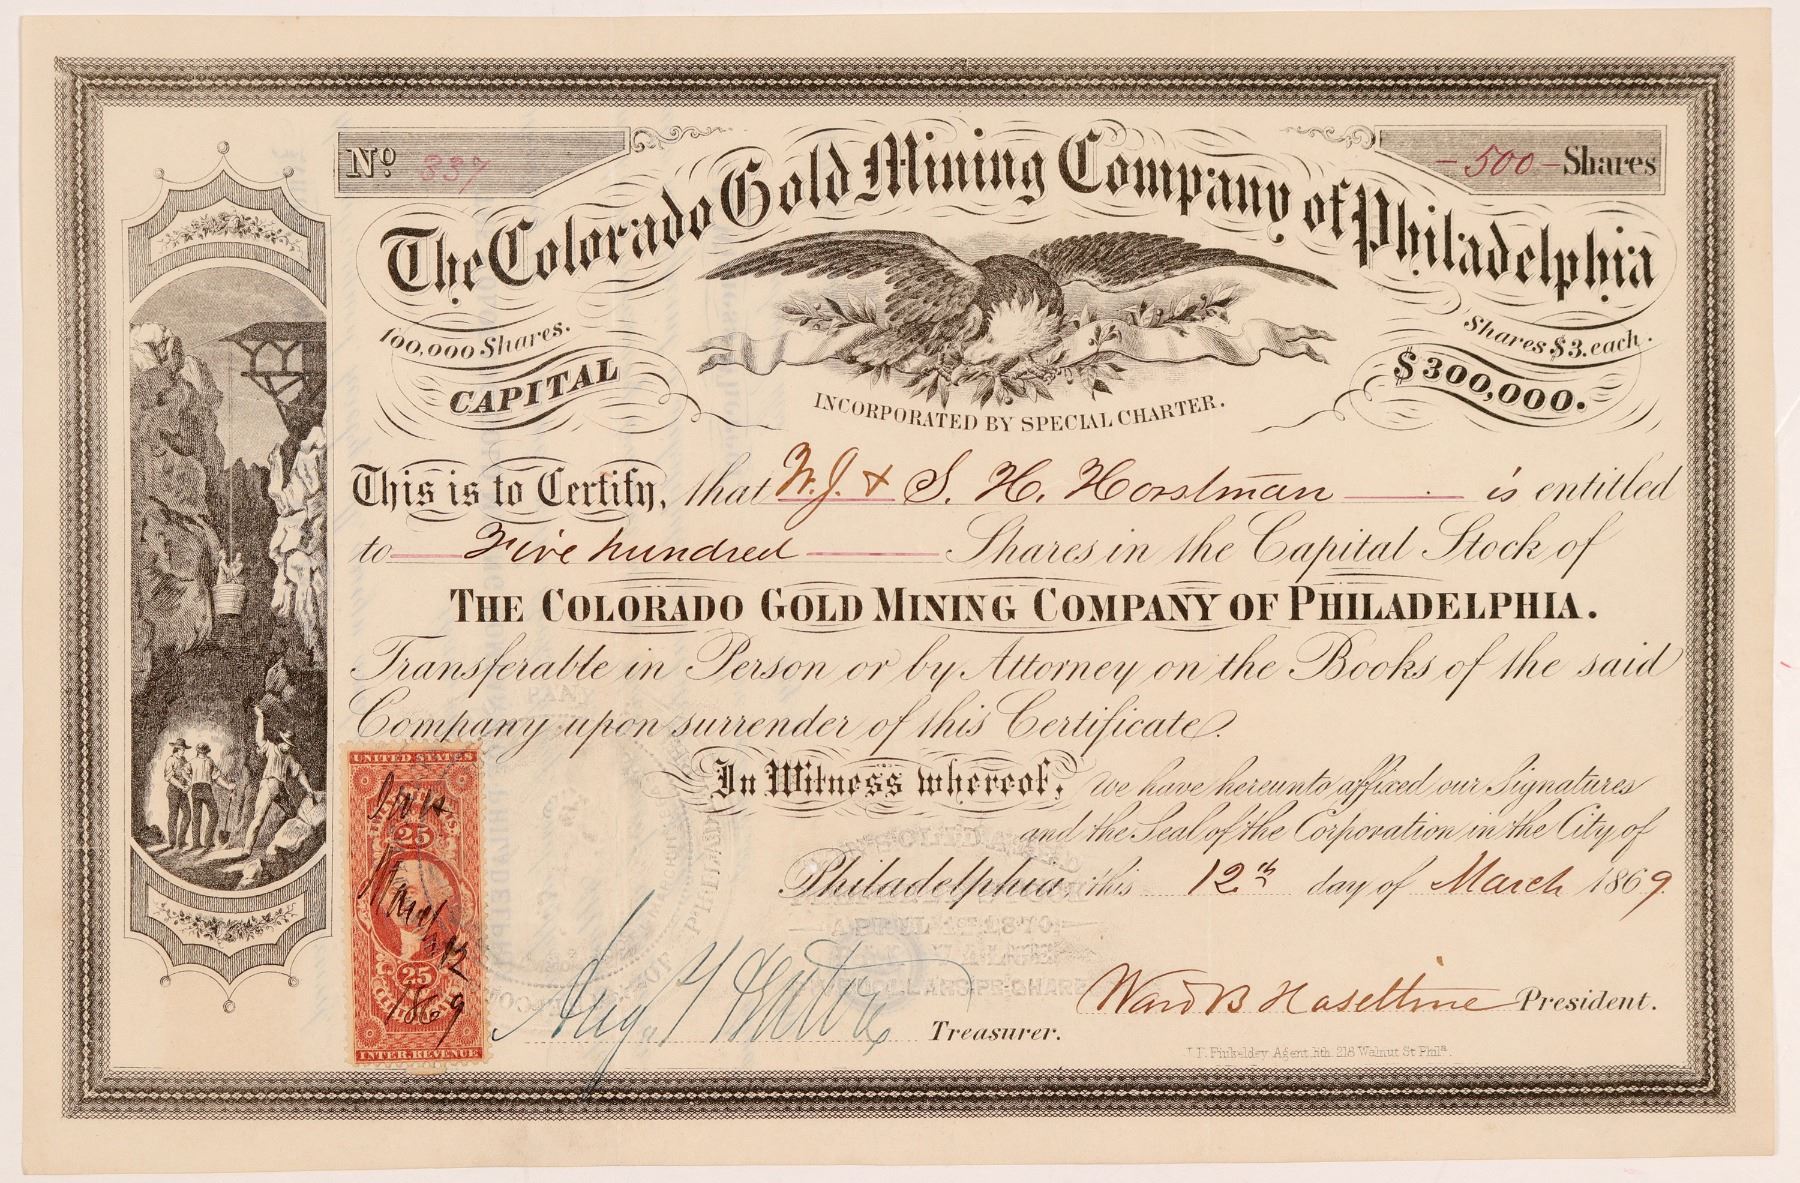 No 337
- 500 - Shares
The Colorado Gold Mining Company of Philadelphia
100,000 Shares.
Shares $3. each.
CAPITAL
$300,000.
INCORPORATED BY SPECIAL CHARTER.
This is to Certify, that W. J. & S. H. Horstman is entitled
to Five hundred Shares in the Capital Stock of
THE COLORADO GOLD MINING COMPANY OF PHILADELPHIA.
Transferable in Person or by Attorney on the Books of the said
Company upon surrender of this Certificate.
In Witness whereof, we have hereunto affixed our Signatures
and the Seal of the Corporation in the City of
Philadelphia, this 12th day of March 1869
APRIL 1870
Treasurer.
Ward B Haseltine President.
Agent. lith. 218 Walnut St Phila.
UNITED STATES
25
March 12
25
1869
INTER. REVENUE